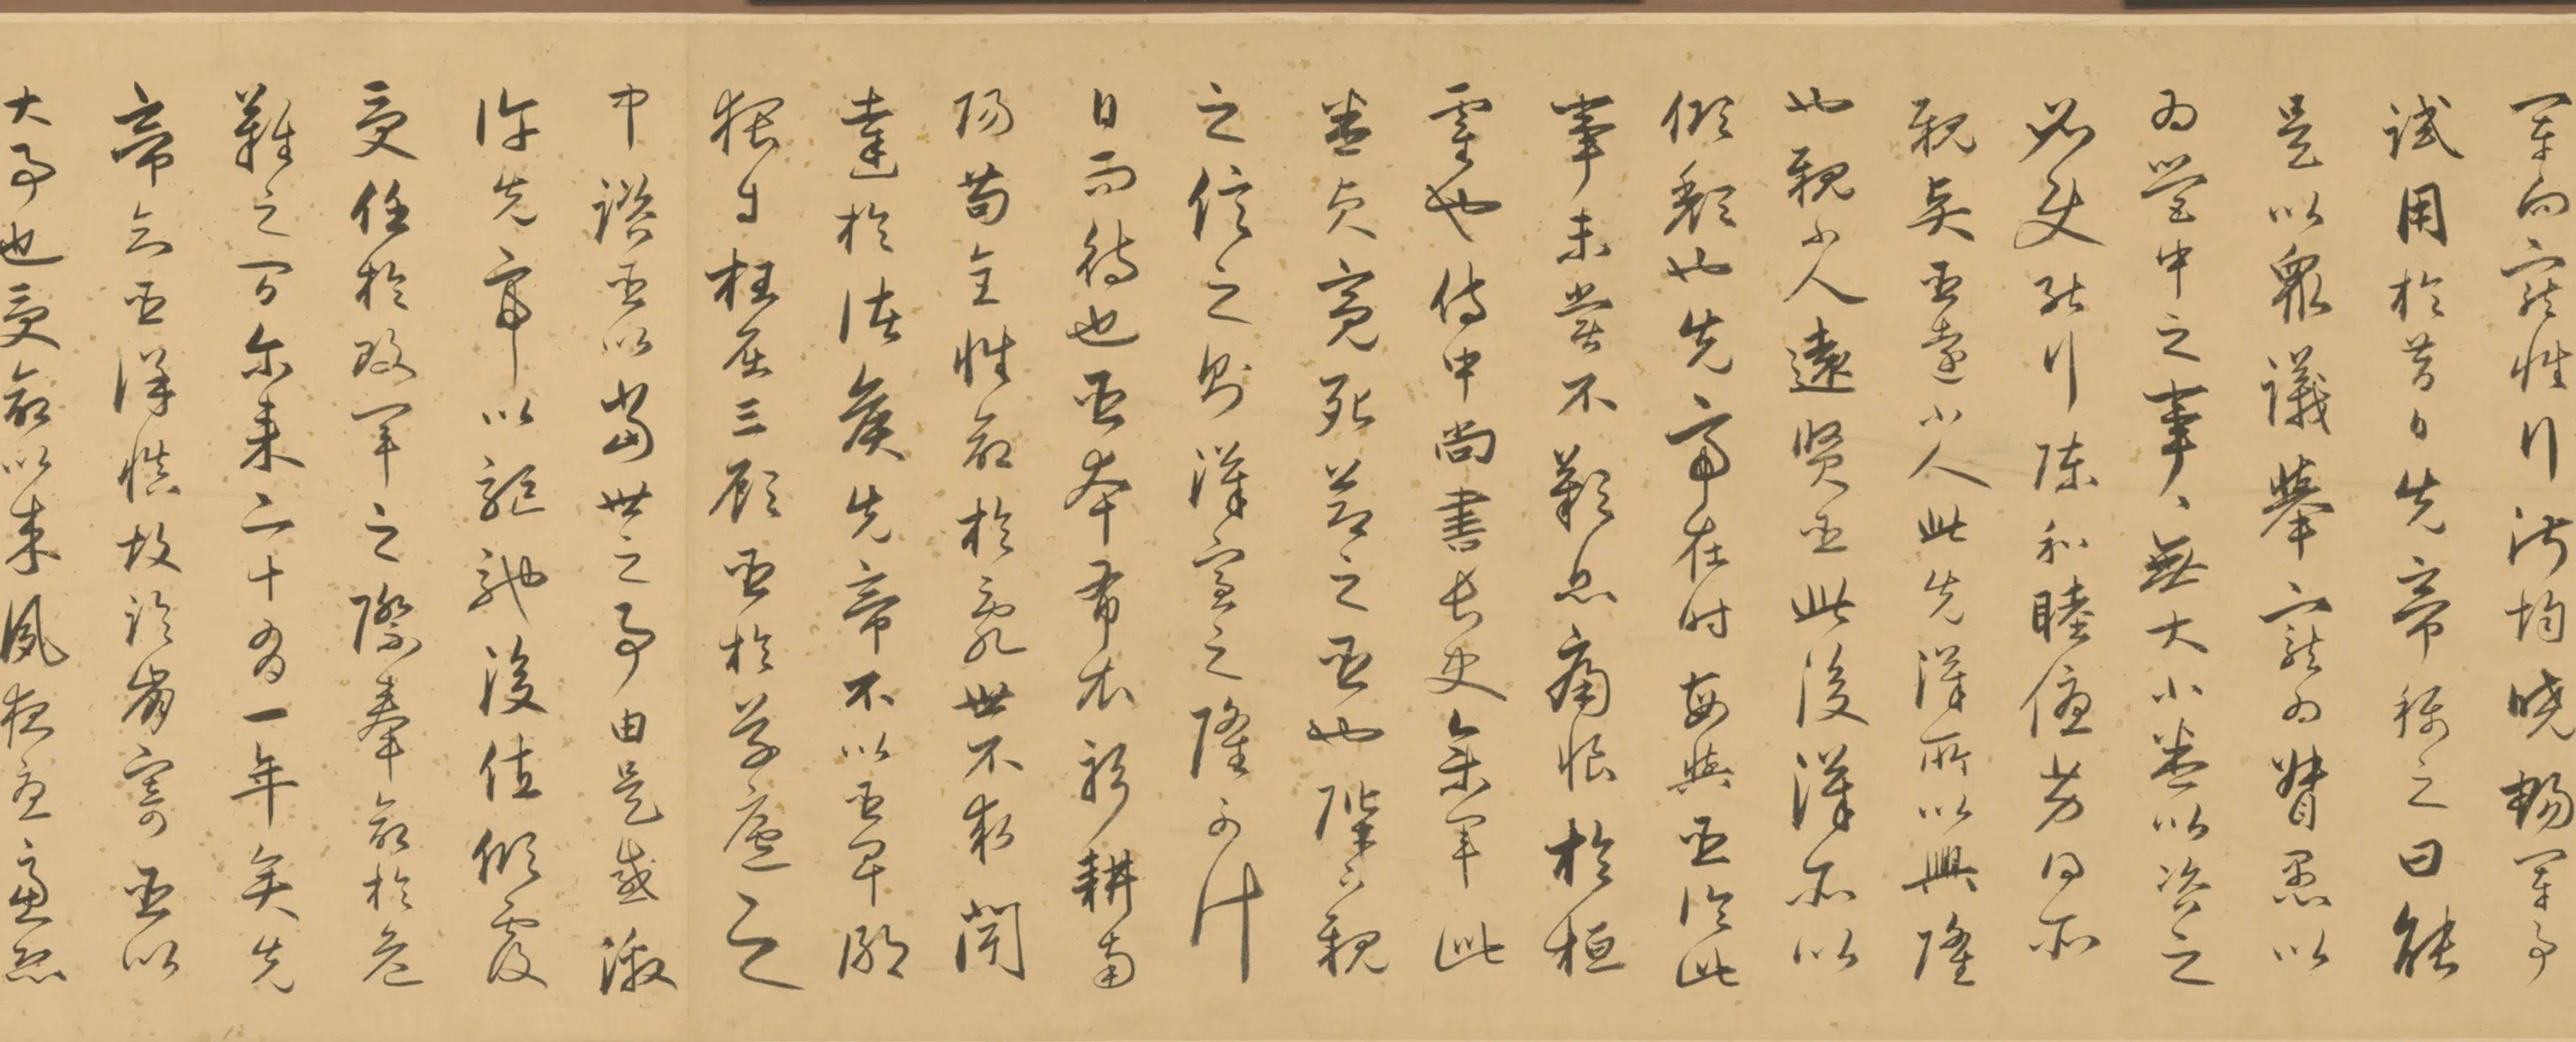 軍向寵性行淑均曉暢軍事
試用於昔日先帝稱之曰能
是以衆議舉寵為督愚以
為營中之事事無大小悉以咨之
必使能行陳和睦優劣得所
親賢臣遠小人此先漢所以興隆
也親小人遠賢臣此後漢所以
傾頹也先帝在時每與臣論此
事未嘗不歎息痛恨於桓
靈也侍中尚書長史參軍此
悉貞亮死節之臣也陛下親
之信之則漢室之隆可計
日而待也臣本布衣躬耕南
陽苟全性命於亂世不求聞
達於諸侯先帝不以臣卑鄙
猥自枉屈三顧臣於草廬之
中諮臣以當世之事由是感激
許先帝以驅馳後值傾覆
受任於敗軍之際奉命於危
難之間尔来二十有一年矣先
帝知臣謹慎故臨崩寄臣以
大事也受命以来夙夜憂慮恐